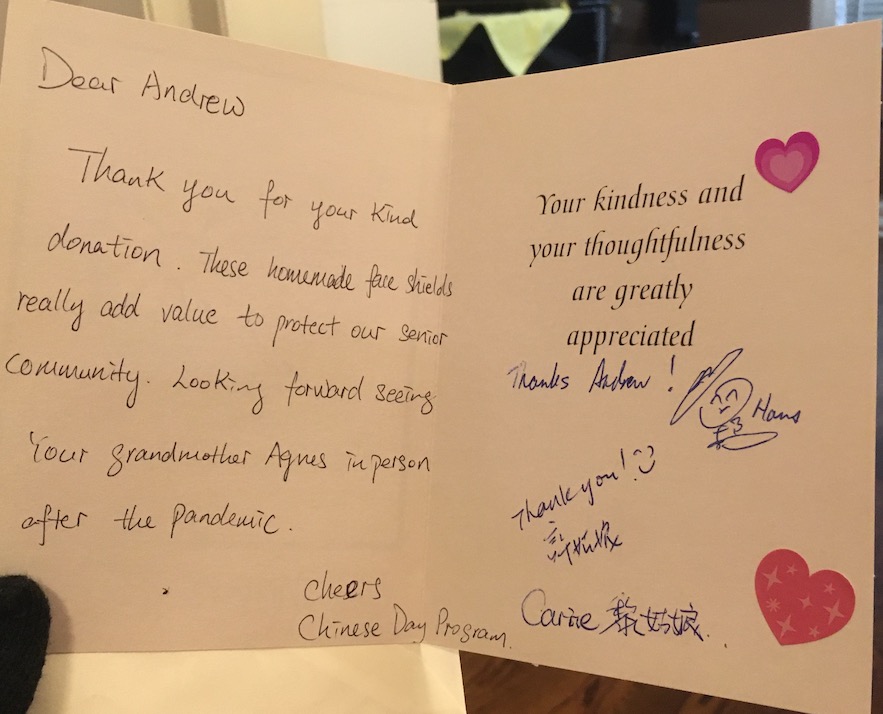 Dear Andrew
Thank you for your kind
donation. These homemade face shields
really add value to protect our senior
community. Looking forward seeing
Your grandmother Agnes in person
after the pandemic.
cheers
Chinese Day Program.
Your kindness and
your thoughtfulness
are greatly
appreciated
Thanks Andrew!
Hans
Thank you!
許姑娘
Carrie 黎姑娘.